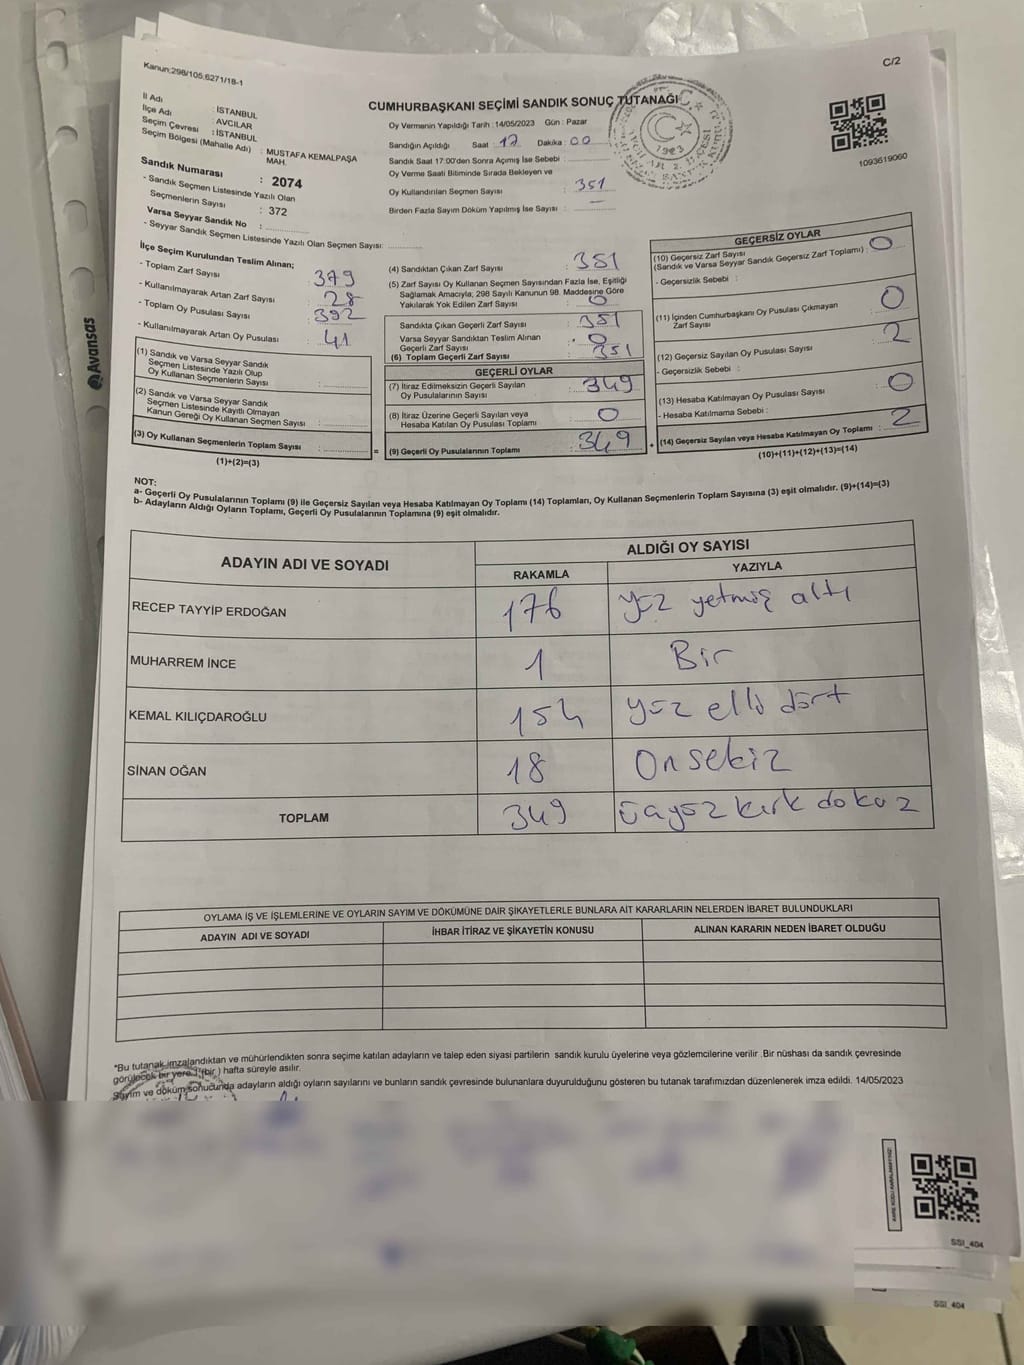 Kanun;298/105,6271/18-1
C/2
İl Adı : İSTANBUL
İlçe Adı : AVCILAR
Seçim Çevresi : İSTANBUL
Seçim Bölgesi (Mahalle Adı) : MUSTAFA KEMALPAŞA MAH.
Sandık Numarası : 2074
- Sandık Seçmen Listesinde Yazılı Olan
Seçmenlerin Sayısı : 372
Varsa Seyyar Sandık No :
- Seyyar Sandık Seçmen Listesinde Yazılı Olan Seçmen Sayısı:
CUMHURBAŞKANI SEÇİMİ SANDIK SONUÇ TUTANAĞI
Oy Vermenin Yapıldığı Tarih : 14/05/2023 Gün : Pazar
Sandığın Açıldığı Saat : 17 Dakika : 00
Sandık Saat 17:00'den Sonra Açımış İse Sebebi :
Oy Verme Saati Bitiminde Sırada Bekleyen ve
Oy Kullandırılan Seçmen Sayısı : 351
Birden Fazla Sayım Döküm Yapılmış İse Sayısı : —
1093619060
İlçe Seçim Kurulundan Teslim Alınan;
- Toplam Zarf Sayısı : 379
- Kullanılmayarak Artan Zarf Sayısı : 28
- Toplam Oy Pusulası Sayısı : 392
- Kullanılmayarak Artan Oy Pusulası : 41
(1) Sandık ve Varsa Seyyar Sandık
Seçmen Listesinde Yazılı Olup
Oy Kullanan Seçmenlerin Sayısı :
(2) Sandık ve Varsa Seyyar Sandık
Seçmen Listesinde Kayıtlı Olmayan
Kanun Gereği Oy Kullanan Seçmen Sayısı :
(3) Oy Kullanan Seçmenlerin Toplam Sayısı :
(1)+(2)=(3)
(4) Sandıktan Çıkan Zarf Sayısı : 351
(5) Zarf Sayısı Oy Kullanan Seçmen Sayısından Fazla İse, Eşitliği
Sağlamak Amacıyla, 298 Sayılı Kanunun 98. Maddesine Göre
Yakılarak Yok Edilen Zarf Sayısı : 0
Sandıkta Çıkan Geçerli Zarf Sayısı : 351
Varsa Seyyar Sandıktan Teslim Alınan
Geçerli Zarf Sayısı : 0
(6) Toplam Geçerli Zarf Sayısı : 351
GEÇERLİ OYLAR
(7) İtiraz Edilmeksizin Geçerli Sayılan
Oy Pusulalarının Sayısı : 349
(8) İtiraz Üzerine Geçerli Sayılan veya
Hesaba Katılan Oy Pusulası Toplamı : 0
= (9) Geçerli Oy Pusulalarının Toplamı : 349
GEÇERSİZ OYLAR
(10) Geçersiz Zarf Sayısı
(Sandık ve Varsa Seyyar Sandık Geçersiz Zarf Toplamı) : 0
- Geçersizlik Sebebi :
(11) İçinden Cumhurbaşkanı Oy Pusulası Çıkmayan
Zarf Sayısı : 0
(12) Geçersiz Sayılan Oy Pusulası Sayısı : 2
- Geçersizlik Sebebi :
(13) Hesaba Katılmayan Oy Pusulası Sayısı : 0
- Hesaba Katılmama Sebebi :
+ (14) Geçersiz Sayılan veya Hesaba Katılmayan Oy Toplamı : 2
(10)+(11)+(12)+(13)=(14)
NOT:
a- Geçerli Oy Pusulalarının Toplamı (9) ile Geçersiz Sayılan veya Hesaba Katılmayan Oy Toplamı (14) Toplamları, Oy Kullanan Seçmenlerin Toplam Sayısına (3) eşit olmalıdır. (9)+(14)=(3)
b- Adayların Aldığı Oyların Toplamı, Geçerli Oy Pusulalarının Toplamına (9) eşit olmalıdır.
ADAYIN ADI VE SOYADI
ALDIĞI OY SAYISI
RAKAMLA YAZIYLA
RECEP TAYYİP ERDOĞAN 176 yüz yetmiş altı
MUHARREM İNCE 1 Bir
KEMAL KILIÇDAROĞLU 154 yüz elli dört
SİNAN OĞAN 18 On sekiz
TOPLAM 349 üçyüz kırk dokuz
OYLAMA İŞ VE İŞLEMLERİNE VE OYLARIN SAYIM VE DÖKÜMÜNE DAİR ŞİKAYETLERLE BUNLARA AİT KARARLARIN NELERDEN İBARET BULUNDUKLARI
ADAYIN ADI VE SOYADI İHBAR İTİRAZ VE ŞİKAYETİN KONUSU ALINAN KARARIN NEDEN İBARET OLDUĞU
*Bu tutanak imzalandıktan ve mühürlendikten sonra seçime katılan adayların ve talep eden siyasi partilerin sandık kurulu üyelerine veya gözlemcilerine verilir .Bir nüshası da sandık çevresinde
görülecek bir yere 1 (bir ) hafta süreyle asılır.
Sayım ve döküm sonucunda adayların aldığı oyların sayılarını ve bunların sandık çevresinde bulunanlara duyurulduğunu gösteren bu tutanak tarafımızdan düzenlenerek imza edildi. 14/05/2023
SSI_404
SSI_404
Avansas